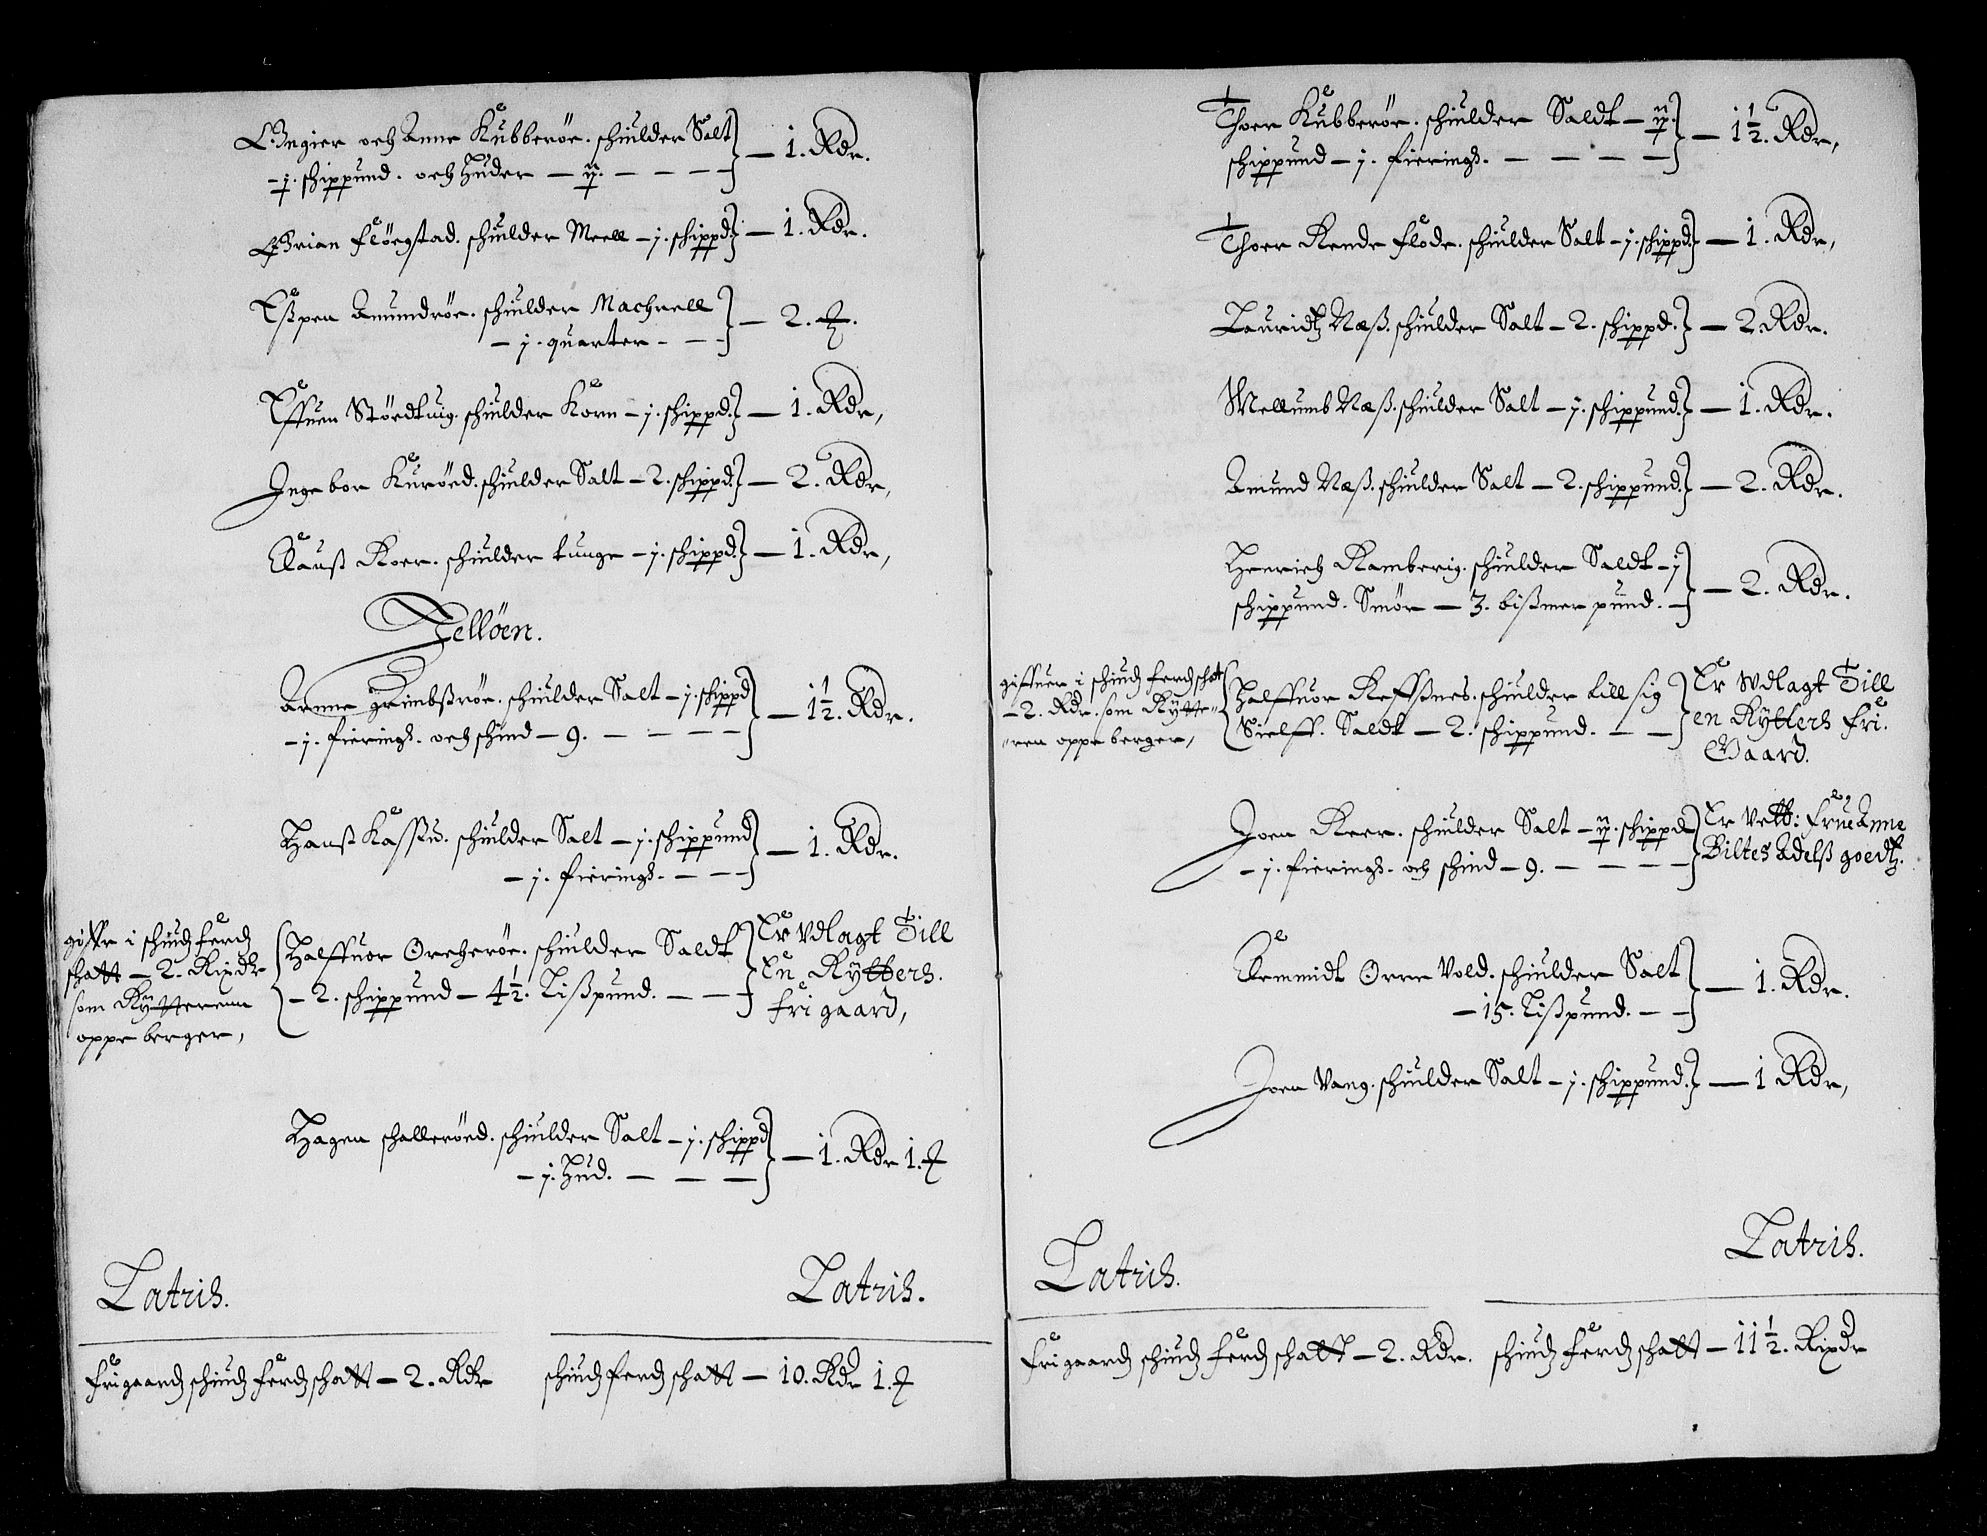 Engier och Anne Kubberöe. schiulder Salt
- j. schippund. och Huder - ij. - - - - 1. Rdr.
Brian Flöegstad. schiulder Meell - j. schippd. - 1. Rdr.
Eßpen Amundröe. schiulder Machrell
- j. quarter - - - 2.
Effuen Stördtuig. schiulder Korn - j. schippd. - 1. Rdr,
Ingebor Kuröed. schiulder Salt - 2. schippd. - 2. Rdr,
Clauß Roer. schiulder tunge - j. schippd. - 1. Rdr,
Jellöen.
Arnne grimbßröe. schiulder Salt - j. schippd
- j. fierings. och schind - 9. - - - - 1½. Rdr.
Hanß Kaßen. schiulder Salt - j. schippund
- j. fierings. - - - 1. Rdr.
giffr i schindz ferdz
schatt - 2. Rixdr
som Rÿtterenn
oppe berger,
Halffuor Orcheröe. schiulder Saldt
- 2. schippund - 4½. Lißpund. - - -
Er Vdlagt Till
En Rÿtters.
fri gaard,
Hagen schalleröed. schiulder Salt - j. schippd
- j. Hud. - - - 1. Rdr 1.
Latris. Latris.
Frigaardz schindz ferdz schatt - 2. Rdr schindz ferdz schatt - 10. Rdr 1.
Thoer Kubberöe. schiulder Saldt - ij.
schippund - j. fierings. - - - - 1½. Rdr,
Thoer Rende flode. schiulder Salt - j. schippd. - 1. Rdr,
Lauridtz Næß. schiulder Salt - 2. schippd. - 2. Rdr.
Mellumb Næß. schiulder Salt - j. schippund. - 1. Rdr.
Amund Næß. schiulder Salt - 2. schippund. - 2. Rdr.
Henrich Ramberig. schiulder Saldt - j
schippund. Smör - 3. bißmer pund. - 2. Rdr.
giffuer i schindz ferdz schat
- 2. Rdr. som Rÿtte-
-ren oppe berger,
Halffuor Reffßnes. schiulder till sig
Sielff. Saldt - 2. schippund. - -
Er Wdlagt Till
en Rÿtters fri.
Gaard.
Joen Reer. schiulder Salt - ij. schippd
- j. fierings. och schind - 9. - - - -
Er Velb: Frue Anne
Biltes Adelß goedtz.
Kemmidt Orre Vold. schiulder Salt
- 15. Lißpund. - - 1. Rdr.
Joen Vang. schiulder Salt - j. schippund. - 1 Rdr,
Latris. Latris.
Frigaardz schindz ferdz schatt - 2. Rdr. schindz ferdz schatt - 11½. Rixdr